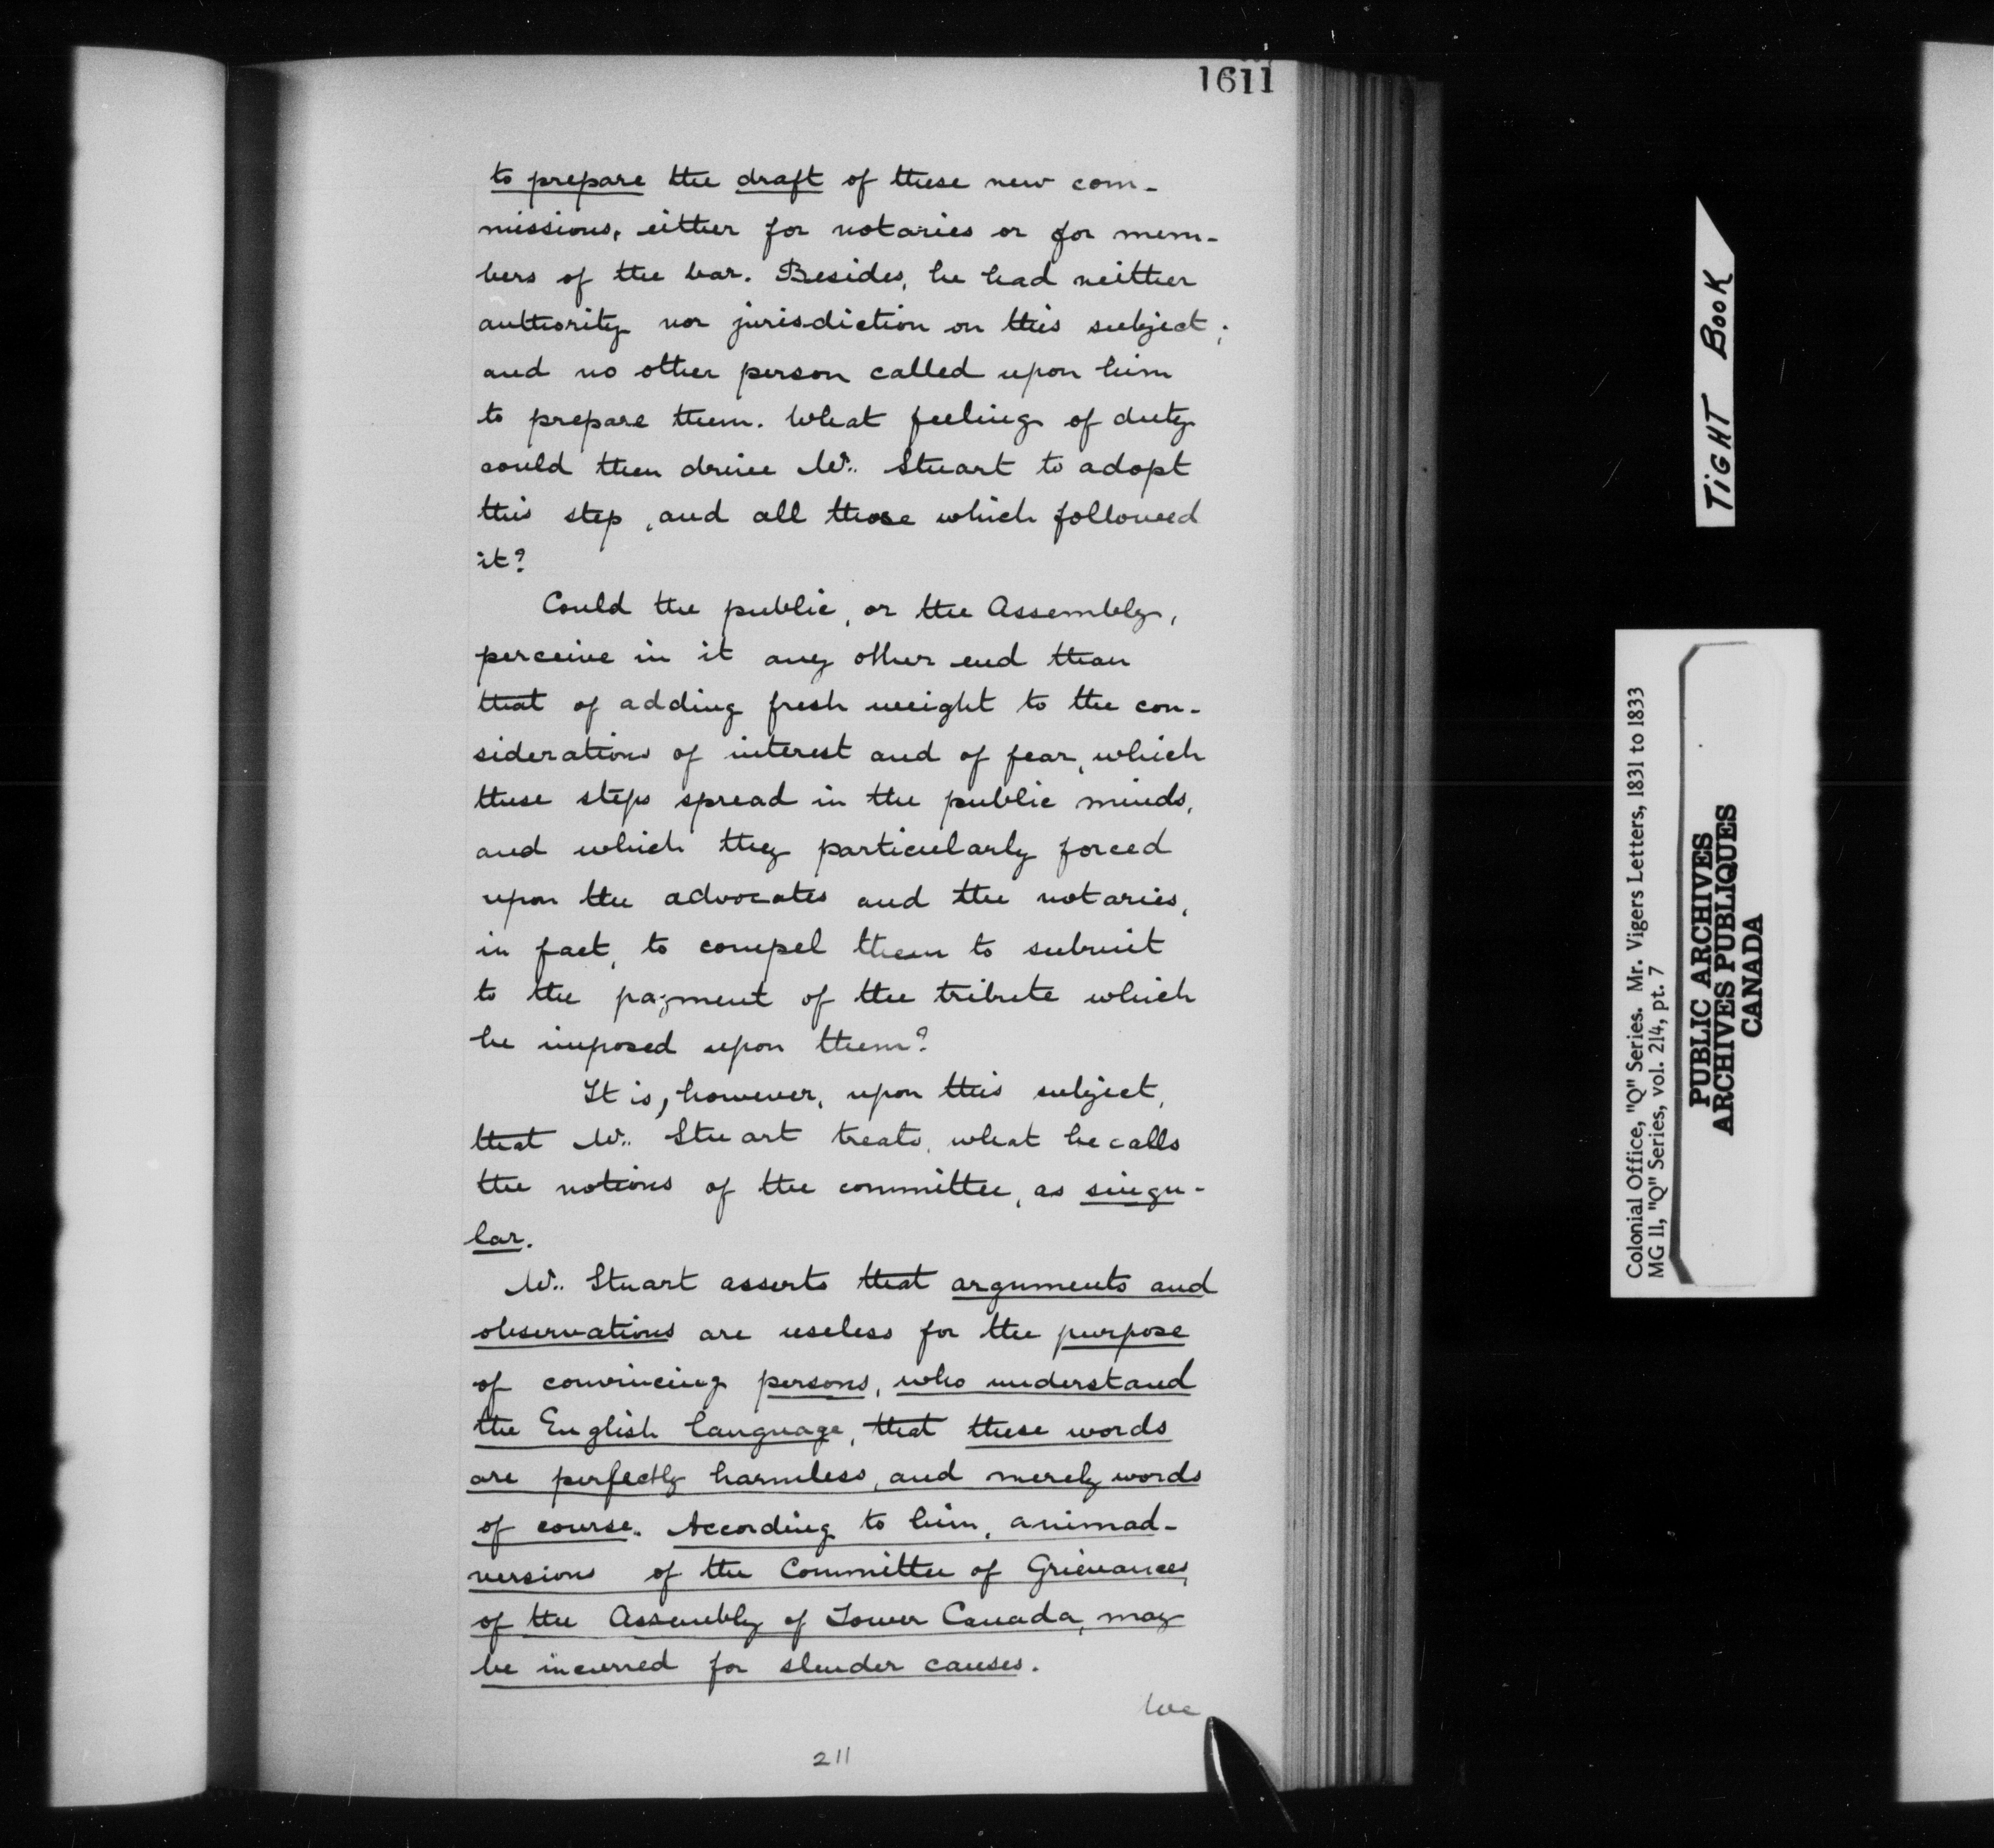 1611
to prepare the draft of these new com-
missions, either for notaries or for mem-
bers of the bar. Besides, he had neither
authority nor jurisdiction on this subject;
and no other person called upon him
to prepare them. What feeling of duty
could then drive Mr. Stuart to adopt
this step, and all those which followed
it?
Could the public, or the Assembly,
perceive in it any other end than
that of adding fresh weight to the con-
siderations of interest and of fear, which
these steps spread in the public minds,
and which they particularly forced
upon the advocates and the notaries,
in fact, to compel them to submit
to the payment of the tribute which
he imposed upon them?
It is, however, upon this subject,
that Mr. Stuart treats, what he calls
the notions of the committee, as singu-
lar.
Mr. Stuart asserts that arguments and
observations are useless for the purpose
of convincing persons, who understand
the English language, that these words
are perfectly harmless, and merely words
of course. According to him, animad-
versions of the Committee of Grievances,
of the Assembly of Lower Canada, may
be incurred for slender causes.
We
211
TIGHT BOOK
Colonial Office, "Q" Series. Mr. Vigers Letters, 1831 to 1833
MG 11, "Q" Series, vol. 214, pt. 7
PUBLIC ARCHIVES
ARCHIVES PUBLIQUES
CANADA